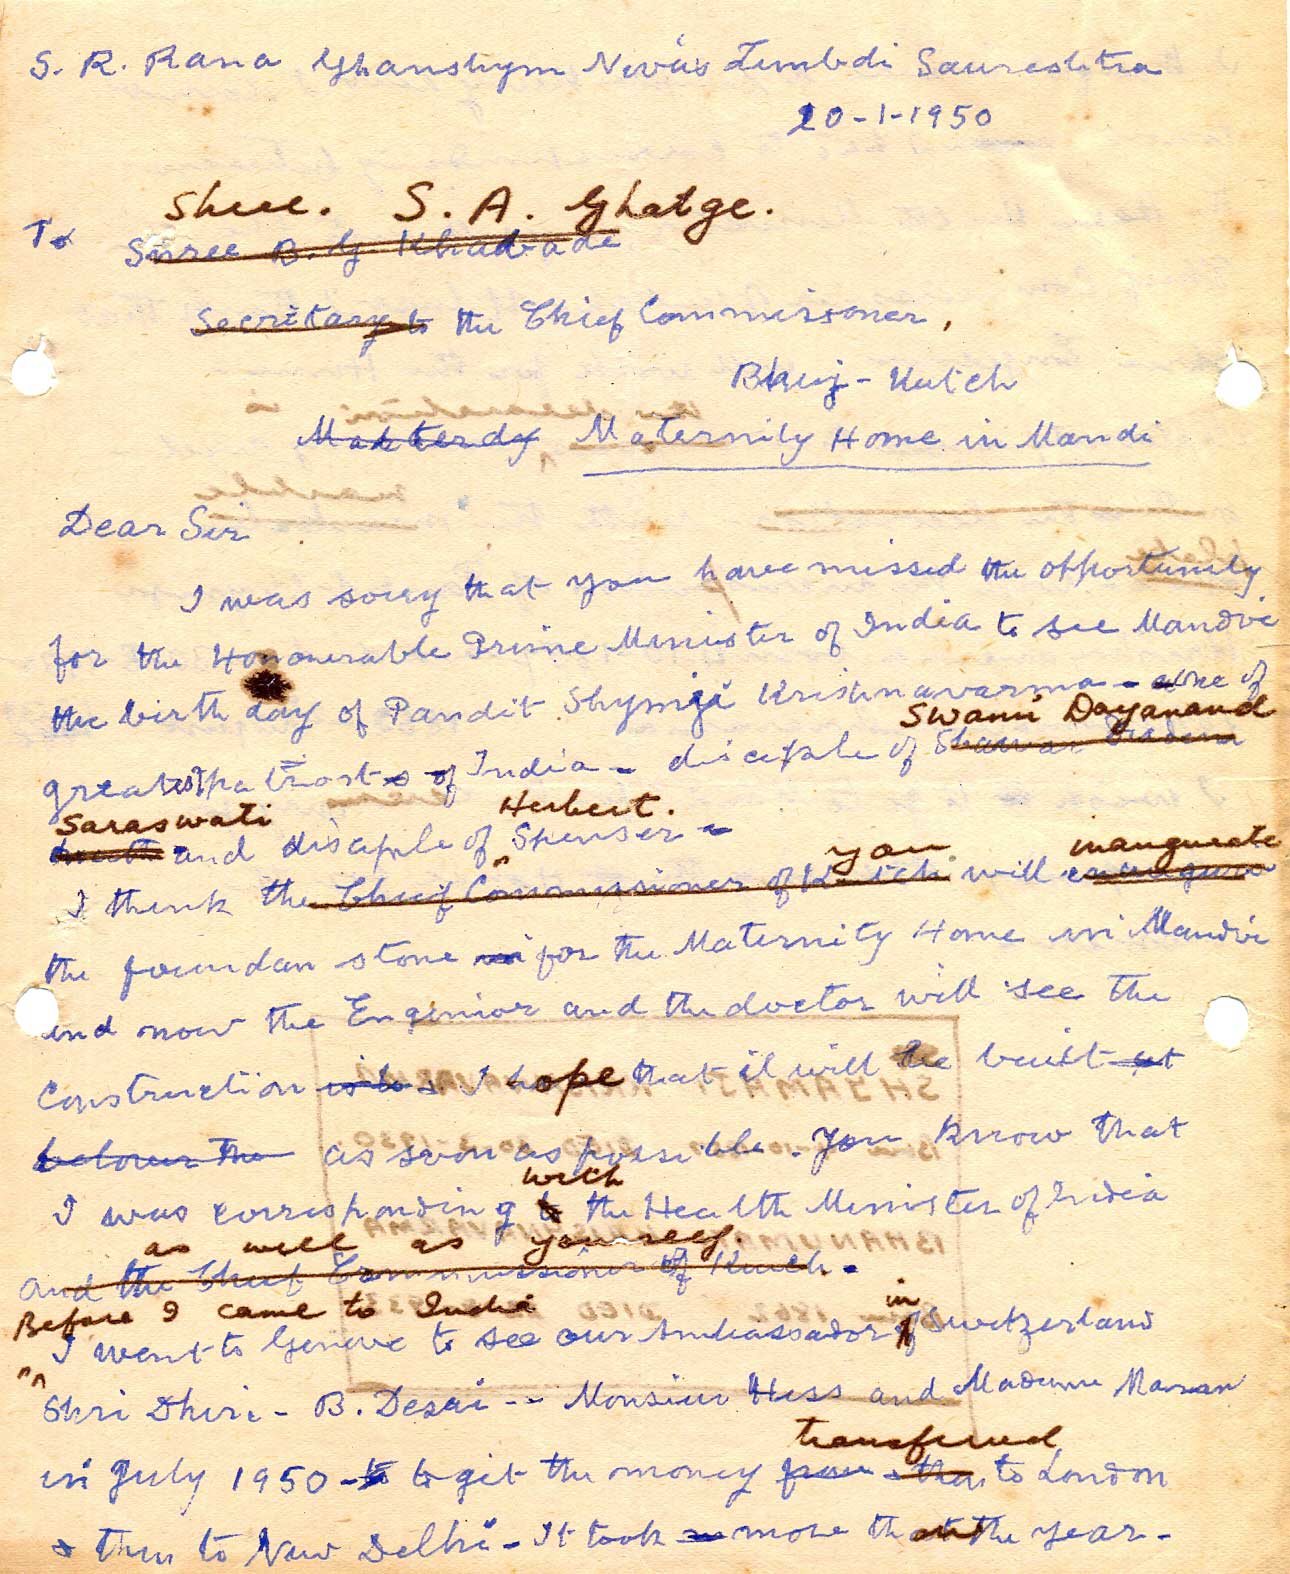 S. R. Rana Ghanshym Nivas Limbdi Saurashtra
20-1-1950
Shree. S. A. Ghatge.
To Shree B. G Khabade
Secritary to the Chief Commissoner,
Bhuj - Kutch
Maternity Home in Mandi
Dear Sir
I was sorry that you have missed the opportunity
for the Hononerable Prime Minister of India to see Mandvi
the birth day of Pandit Shymji Krishnavarma - one of
Swami Dayanand
greatest patriot of India - disciple of
Saraswati Herbert.
and disciple of Spenser -
you inaugurate
I think the Chief Commissioner of Kutch will
the foundan stone for the Maternity Home in Mandvi
and now the Enginior and the doctor will see the
construction I hope that it will be built
as soon as possible. You know that
with
I was corresponding to the Health Minister of India
as well as yourself.
and the Chief Commissioner of Kutch.
Before I came to India in
I went to Geneve to see our Ambassador of Switzerland
Shri Dhiri - B. Desai -- Monsieur Hess and Madame
transfered
in July 1950 - to get the money to London
& then to New Delhi - It took more than the year -